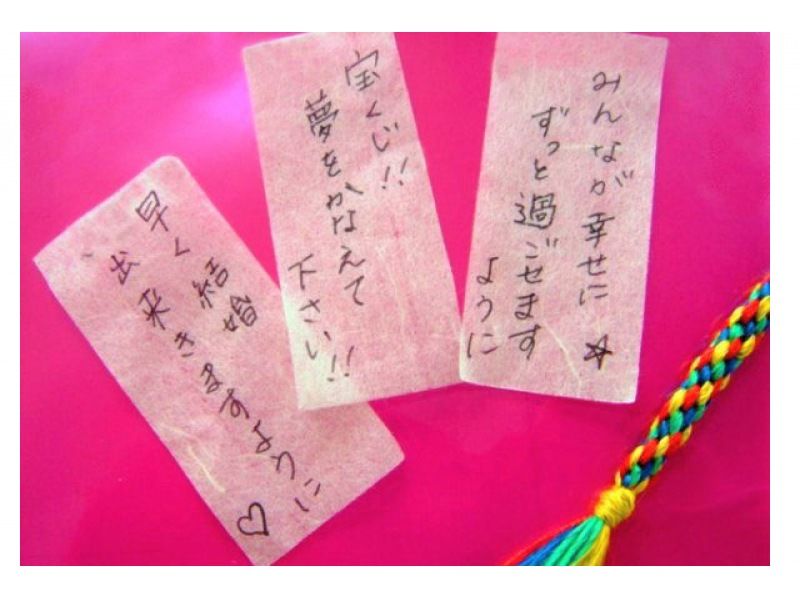 みんなが幸せに☆
ずっと過ごせます
ように
宝くじ!!
夢をかなえて
下さい!!
早く結婚
出来きますように♡